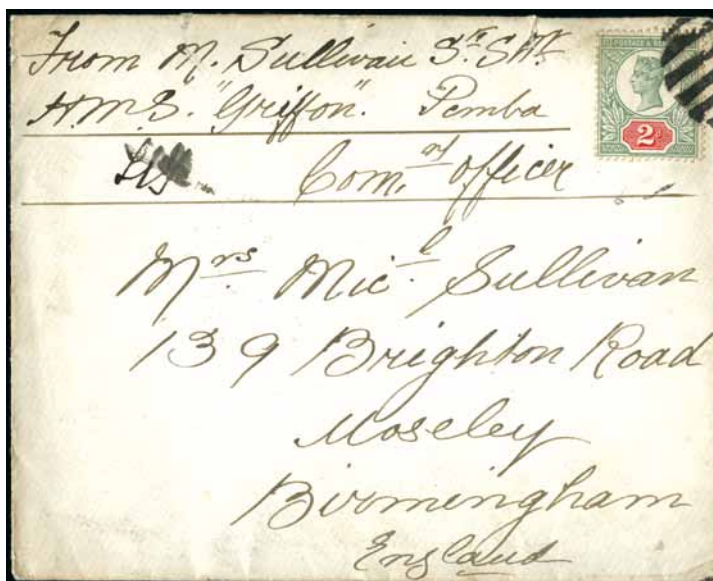 From M. Sullivan
H.M.S. "Griffon". Pemba
Com.r officer
POSTAGE &
2d
Mrs. Micl. Sullivan
139 Brighton Road
Moseley
Birmingham
England